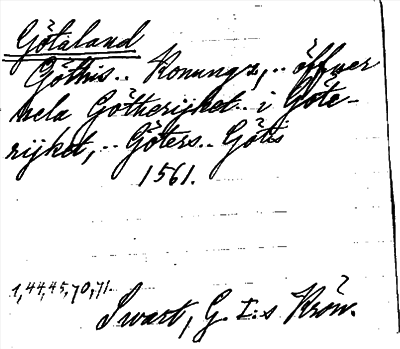 Götaland
Göthis.. Konungz, .. öffwer
hela Götherijket.. i Göte-
rijket, .. Göters.. Götis
1561.
1,44,45,70,71.
Swart, G. I:s Krön.